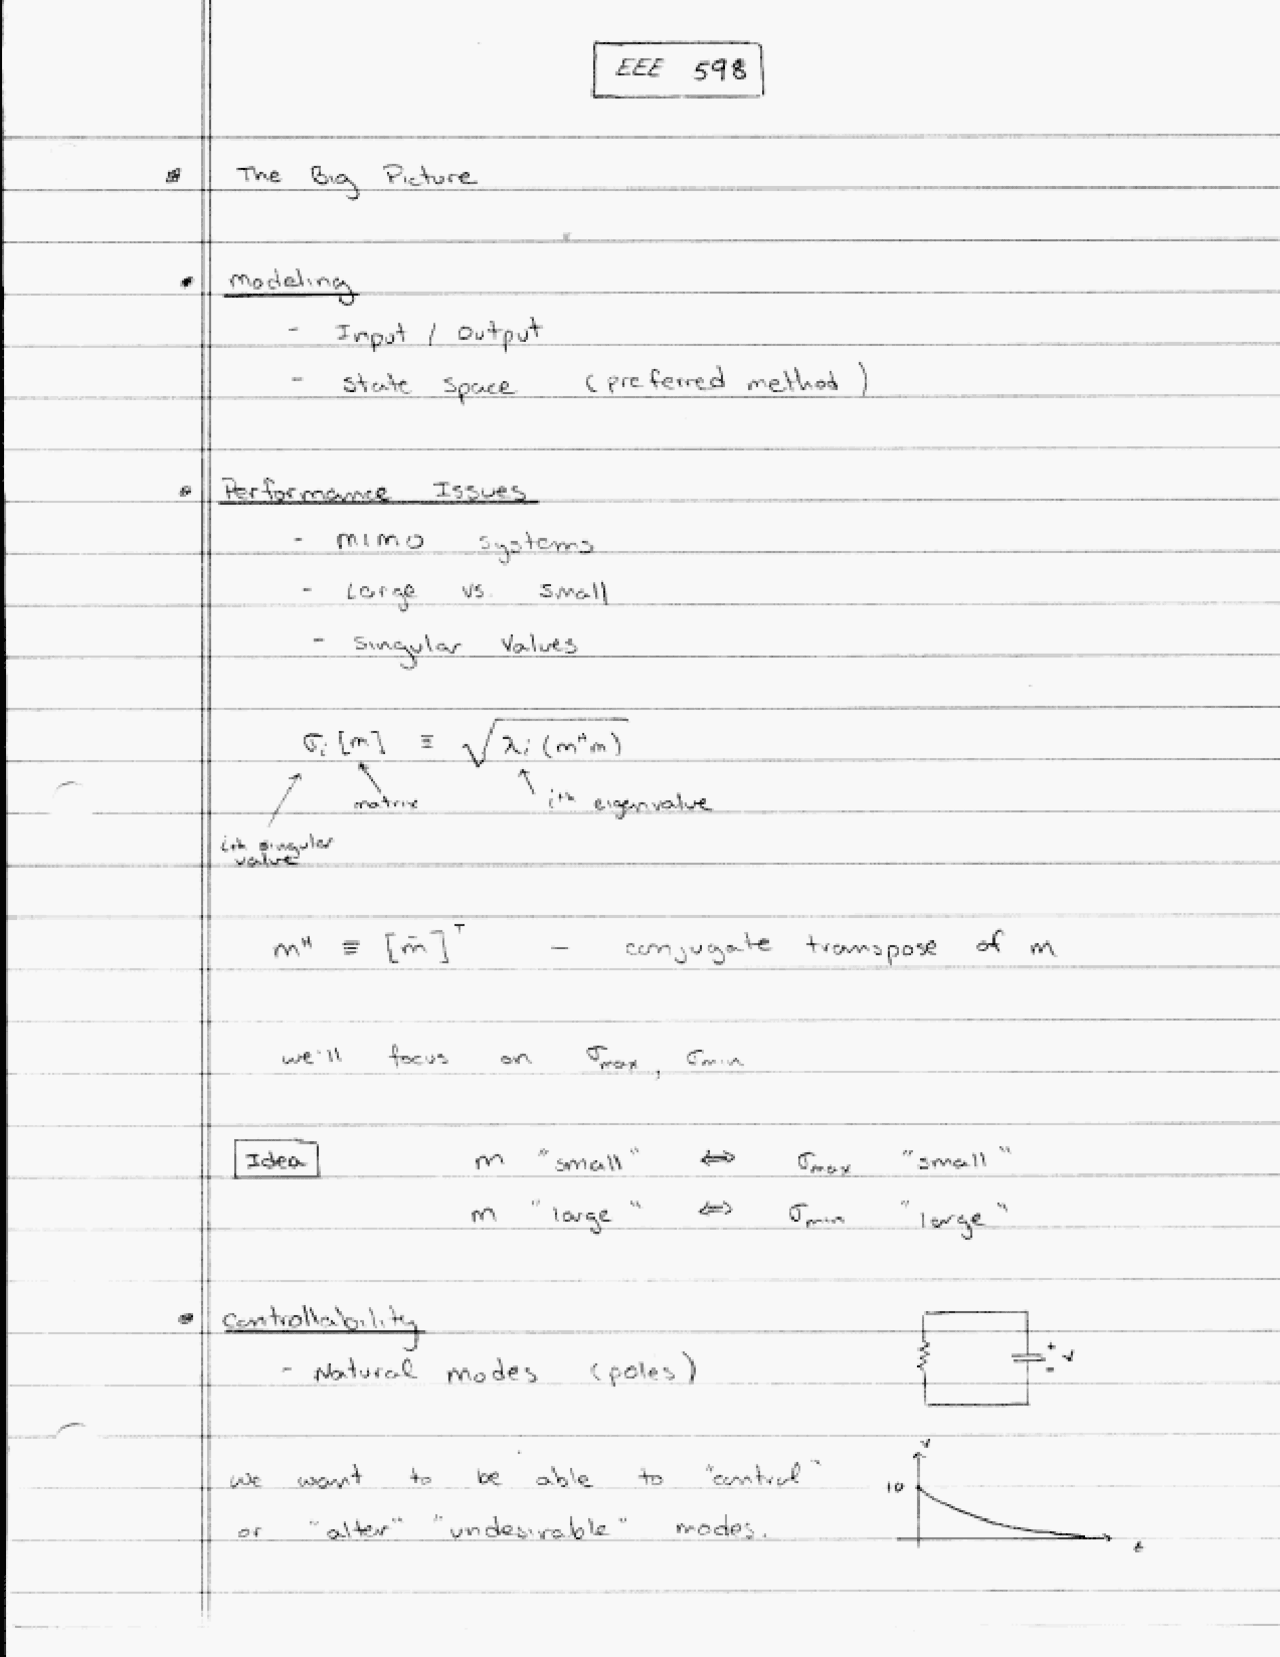 EEE 598
The Big Picture
Modeling
- Input / Output
- State Space (preferred method)
Performance Issues
- MIMO Systems
- Large vs. Small
- Singular Values
σi [M] ≡ √λi (Mᴴ M)
matrix ith eigenvalue
ith singular
value
Mᴴ ≡ [M̄]ᵀ - conjugate transpose of M
we'll focus on σmax, σmin
Idea M "small" ⇔ σmax "small"
M "large" ⇔ σmin "large"
Controllability
+ v
-
- Natural modes (poles)
v
we want to be able to "control"
10
or "alter" "undesirable" modes.
t